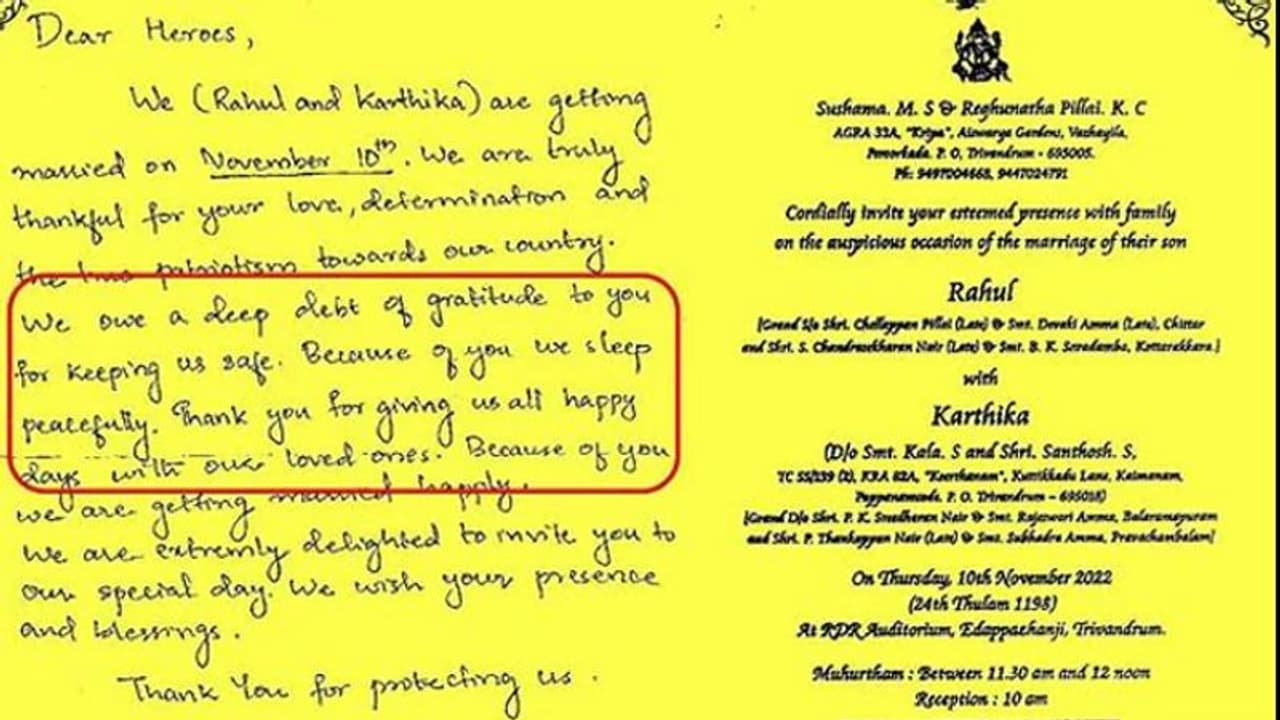 Dear Heroes,
We (Rahul and Karthika) are getting
married on November 10th. We are truly
thankful for your love, determination and
the true patriotism towards our country.
We owe a deep debt of gratitude to you
for keeping us safe. Because of you we sleep
peacefully. Thank you for giving us all happy
days with our loved ones. Because of you
we are getting married happily.
We are extremly delighted to invite you to
our special day. We wish your presence
and blessings.
Thank You for protecting us.
Sushama. M. S & Reghunatha Pillai. K. C
AGRA 33A, "Kripa", Aiswarya Gardens, Vazhayila,
Peroorkada. P. O, Trivandrum - 695005.
Ph: 9497004668, 9447024791
Cordially invite your esteemed presence with family
on the auspicious occasion of the marriage of their son
Rahul
[Grand S/o Shri. Chellappan Pillai (Late) & Smt. Devaki Amma (Late), Chittar
and Shri. S. Chandrasekharan Nair (Late) & Smt. B. K. Saradamba, Kottarakkara.]
with
Karthika
(D/o Smt. Kala. S and Shri. Santhosh. S,
TC 55/239 (2), KRA 82A, "Keerthanam", Kuttikkadu Lane, Kaimanam,
Pappanamcode. P. O. Trivandrum - 695018)
[Grand D/o Shri. P. K. Sreedharan Nair & Smt. Rajeswari Amma, Balaramapuram
and Shri. P. Thankappan Nair (Late) & Smt. Subhadra Amma, Pravachambalam]
On Thursday, 10th November 2022
(24th Thulam 1198)
At RDR Auditorium, Edappazhanji, Trivandrum.
Muhurtham : Between 11.30 am and 12 noon
Reception : 10 am